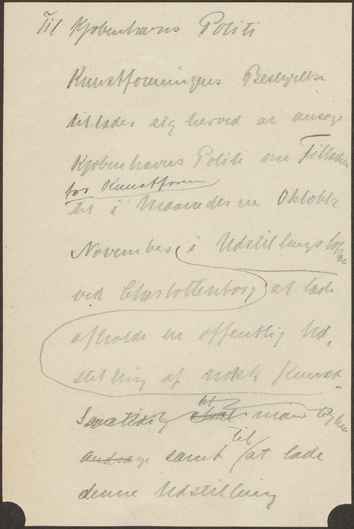 Til Kjøbenhavns Politi
Kunstforeningens Bestyrelse
tillades sig herved at ansøge
Kjøbenhavns Politi om Tilladelse
for Kunstforen
til i Maanederne Oktober
November i Udstillingsbyg
ved Charlottenborg at lade
afholde en offentlig Ud-
stilling af norsk Kunst
Samtidig
samt til at lade
denne Udstilling